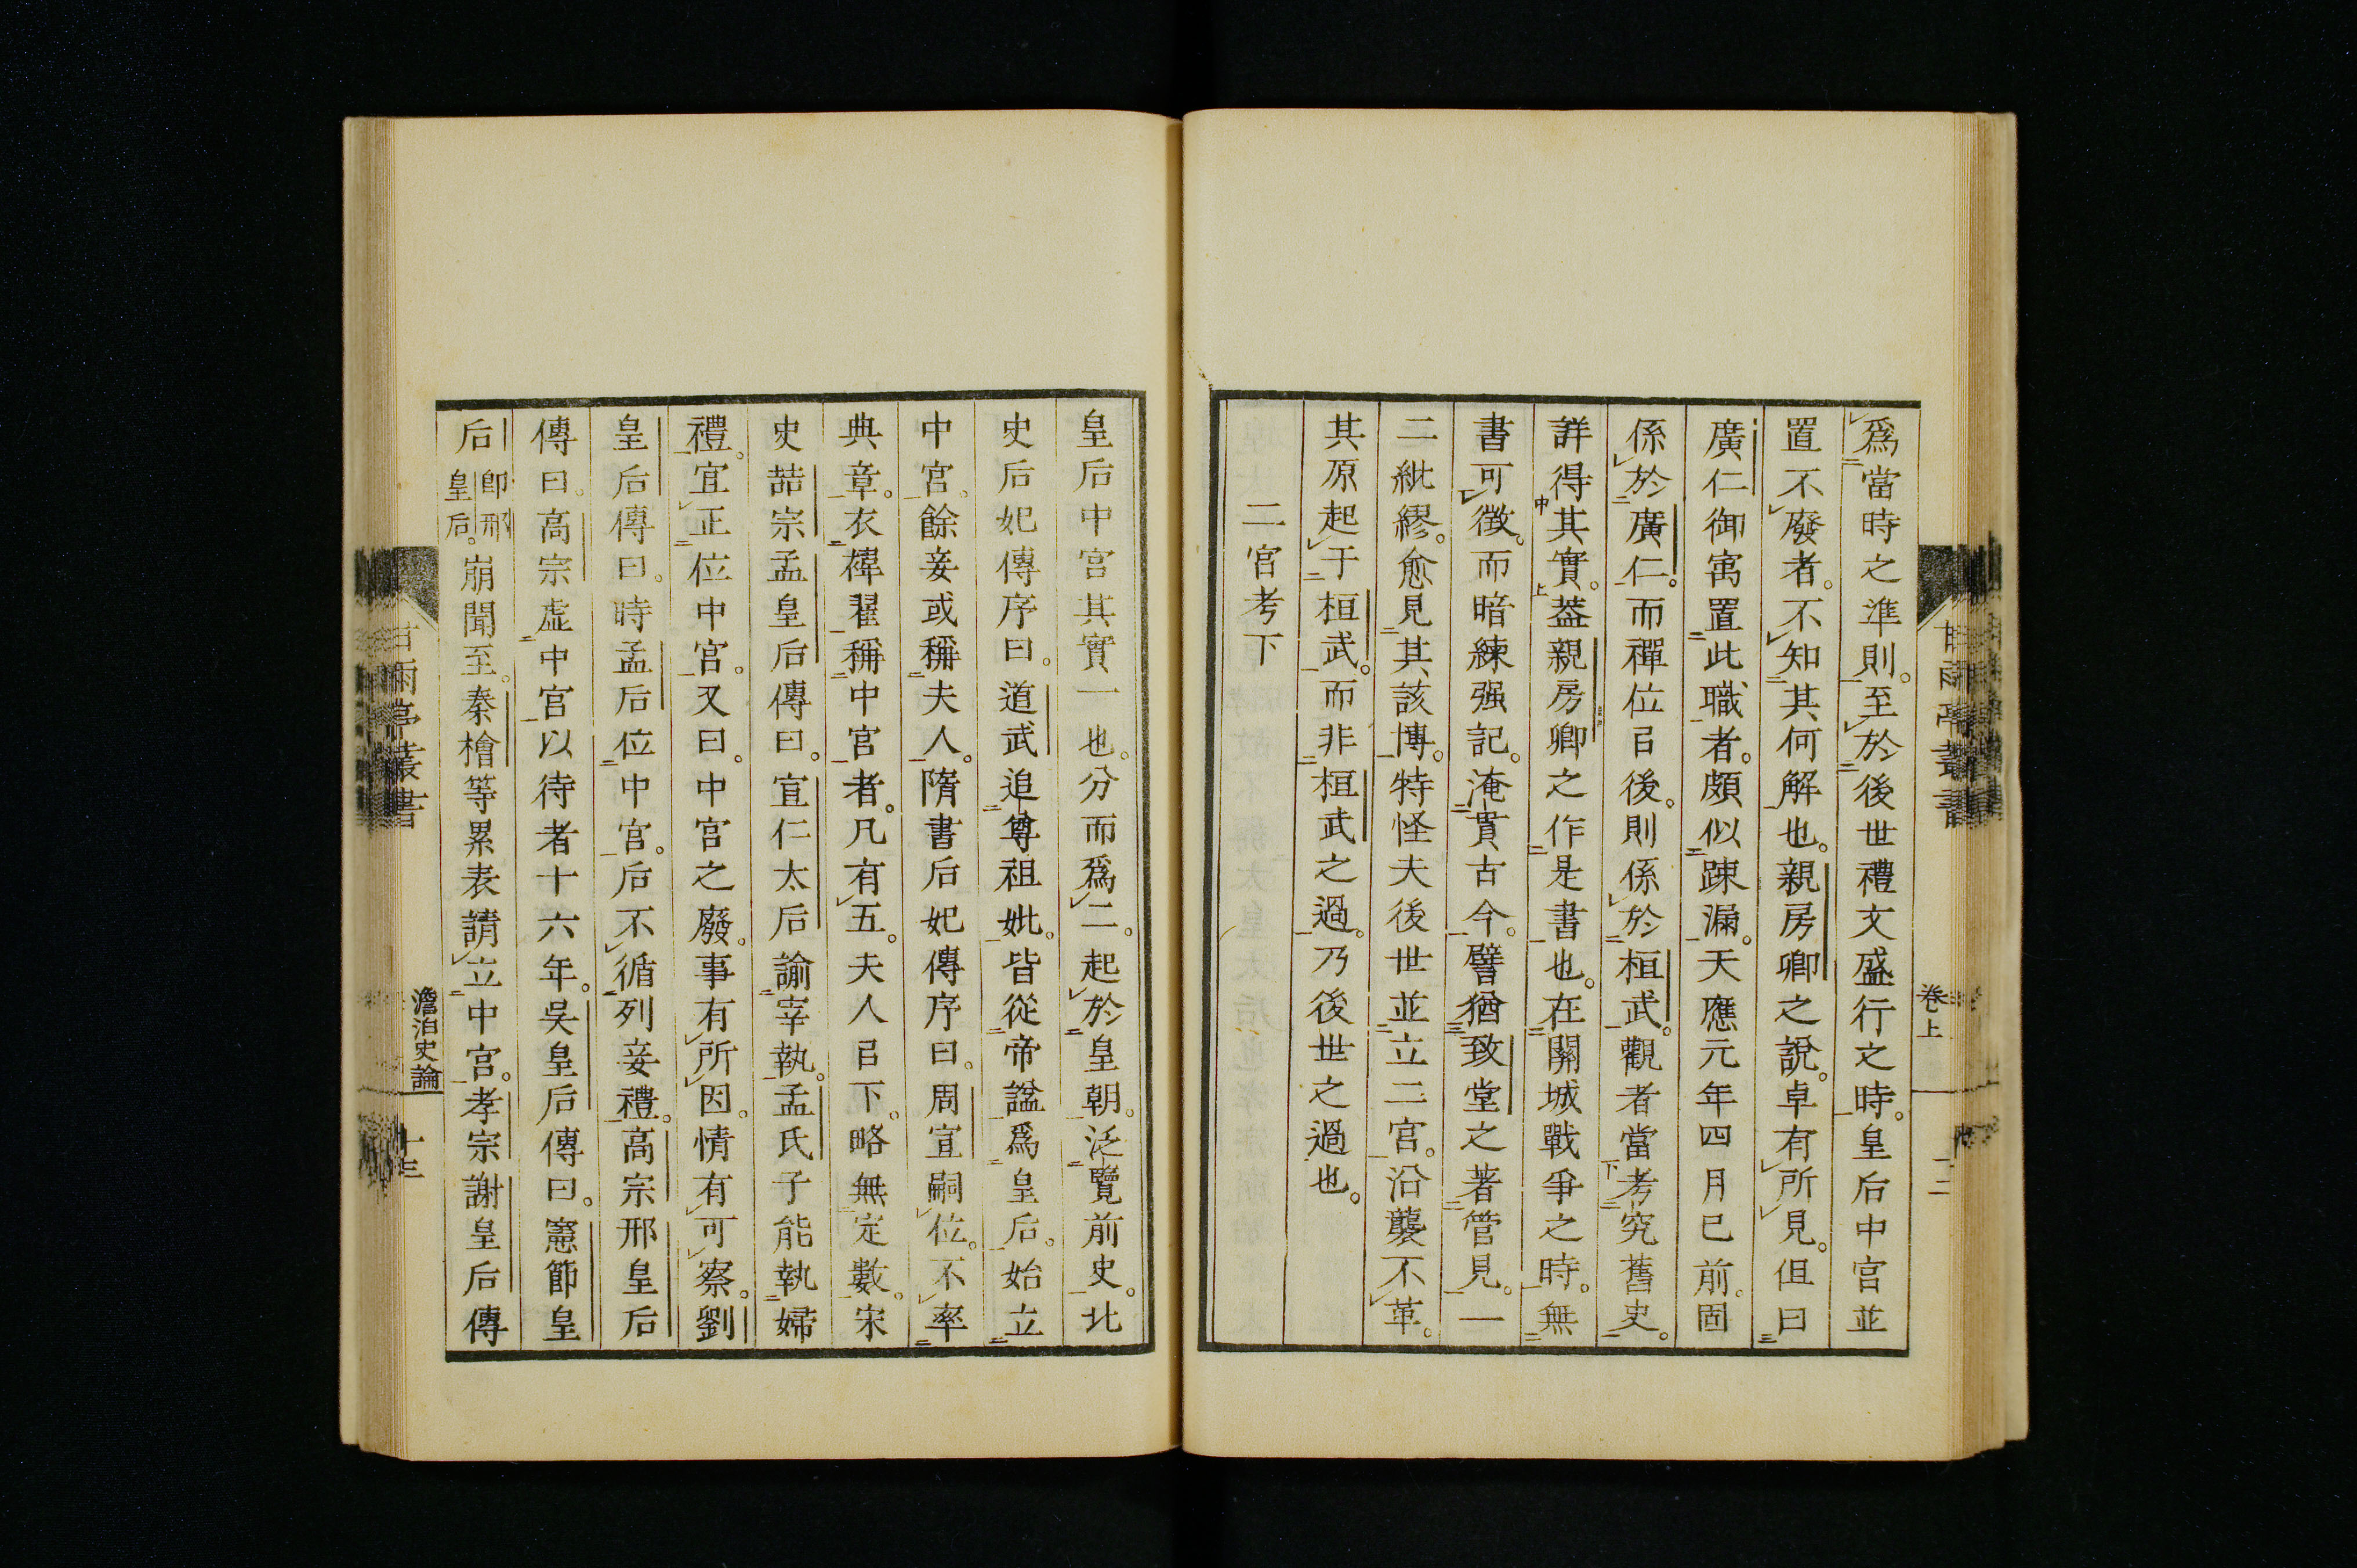 爲當時之準則。至於後世禮文盛行之時。皇后中宮並
置不廢者。不知其何解也。親房卿之說。卓有所見。但曰
廣仁御寓置此職者。頗似踈漏。天應元年四月已前。固
係於廣仁。而禪位㠯後。則係於桓武。觀者當考究舊史。
詳得其實。葢親房卿之作是書也。在關城戰爭之時。無
書可徵。而暗練强記。淹貫古今。譬猶致堂之著管見。一
二紕繆。愈見其該博。特怪夫後世並立二宮。沿襲不革。
其原起于桓武。而非桓武之過。乃後世之過也。
二宮考下
皇后中宮其實一也。分而爲二。起於皇朝。泛覽前史。北
史后妃傳序曰。道武追尊祖妣。皆從帝諡爲皇后。始立
中宮。餘妾或稱夫人。隋書后妃傳序曰。周宣嗣位。不率
典章。衣褘翟稱中宮者。凡有五。夫人㠯下。略無定數。宋
史喆宗孟皇后傳曰。宣仁太后諭宰執。孟氏子能執婦
禮。宜正位中宮。又曰。中宮之廢。事有所因。情有可察。劉
皇后傳曰。時孟后位中宮。后不循列妾禮。高宗邢皇后
傳曰。高宗虛中宮以待者十六年。吳皇后傳曰。憲節皇
后卽邢皇后。崩聞至。秦檜等累表請立中宮。孝宗謝皇后傳
甘雨亭叢書
卷上
十二
甘雨亭叢書
澹泊史論
十三